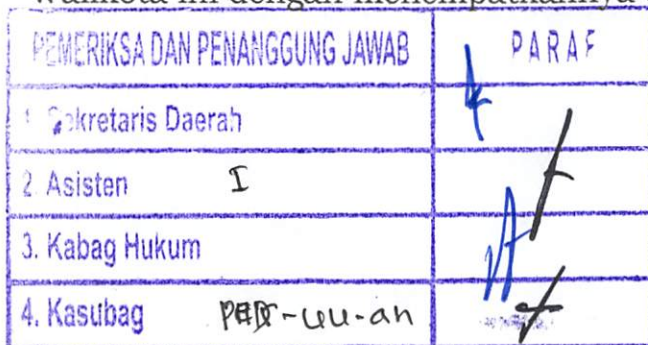 walikota ini dengan menempatkannya
PEMERIKSA DAN PENANGGUNG JAWAB PARAF
1. Sekretaris Daerah
2. Asisten I
3. Kabag Hukum
4. Kasubag PER-UU-an